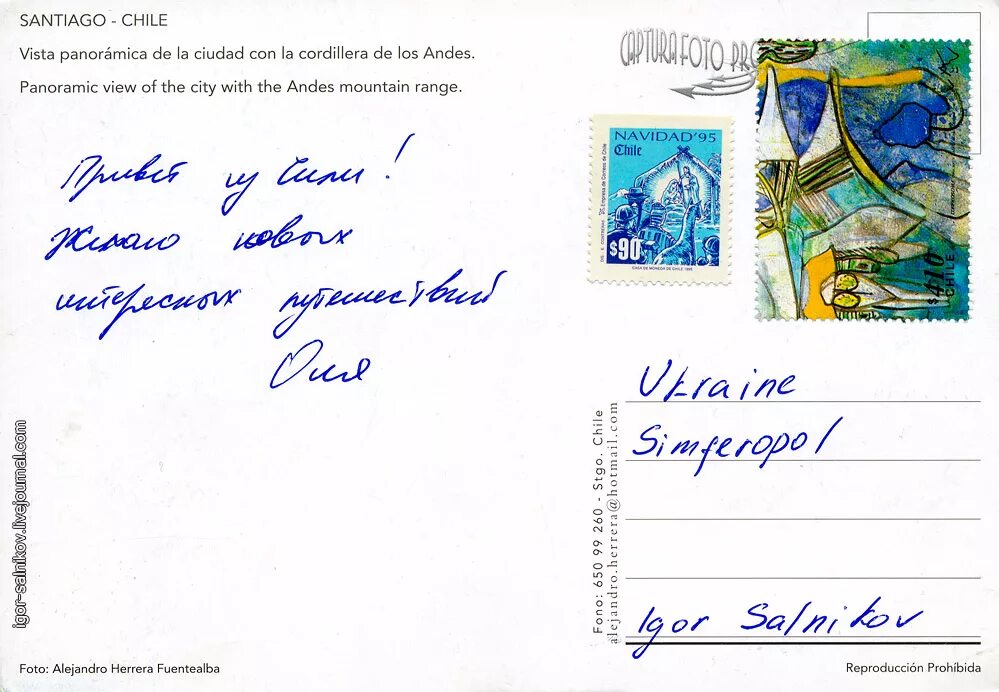 SANTIAGO - CHILE
Vista panorámica de la ciudad con la cordillera de los Andes.
Panoramic view of the city with the Andes mountain range.
CAPTURA FOTO PRO
Привет из Чили!
Желаю новых
интересных путешествий
Оля
NAVIDAD'95
Chile
$90
CASA DE MONEDA DE CHILE 1995
Empresa de Correos de Chile
$410
CHILE
Ukraine
Simferopol
Igor Salnikov
Fono: 650 99 260 - Stgo. Chile
alejandro.herrera@hotmail.com
igor-salnikov.livejournal.com
Foto: Alejandro Herrera Fuentealba
Reproducción Prohíbida